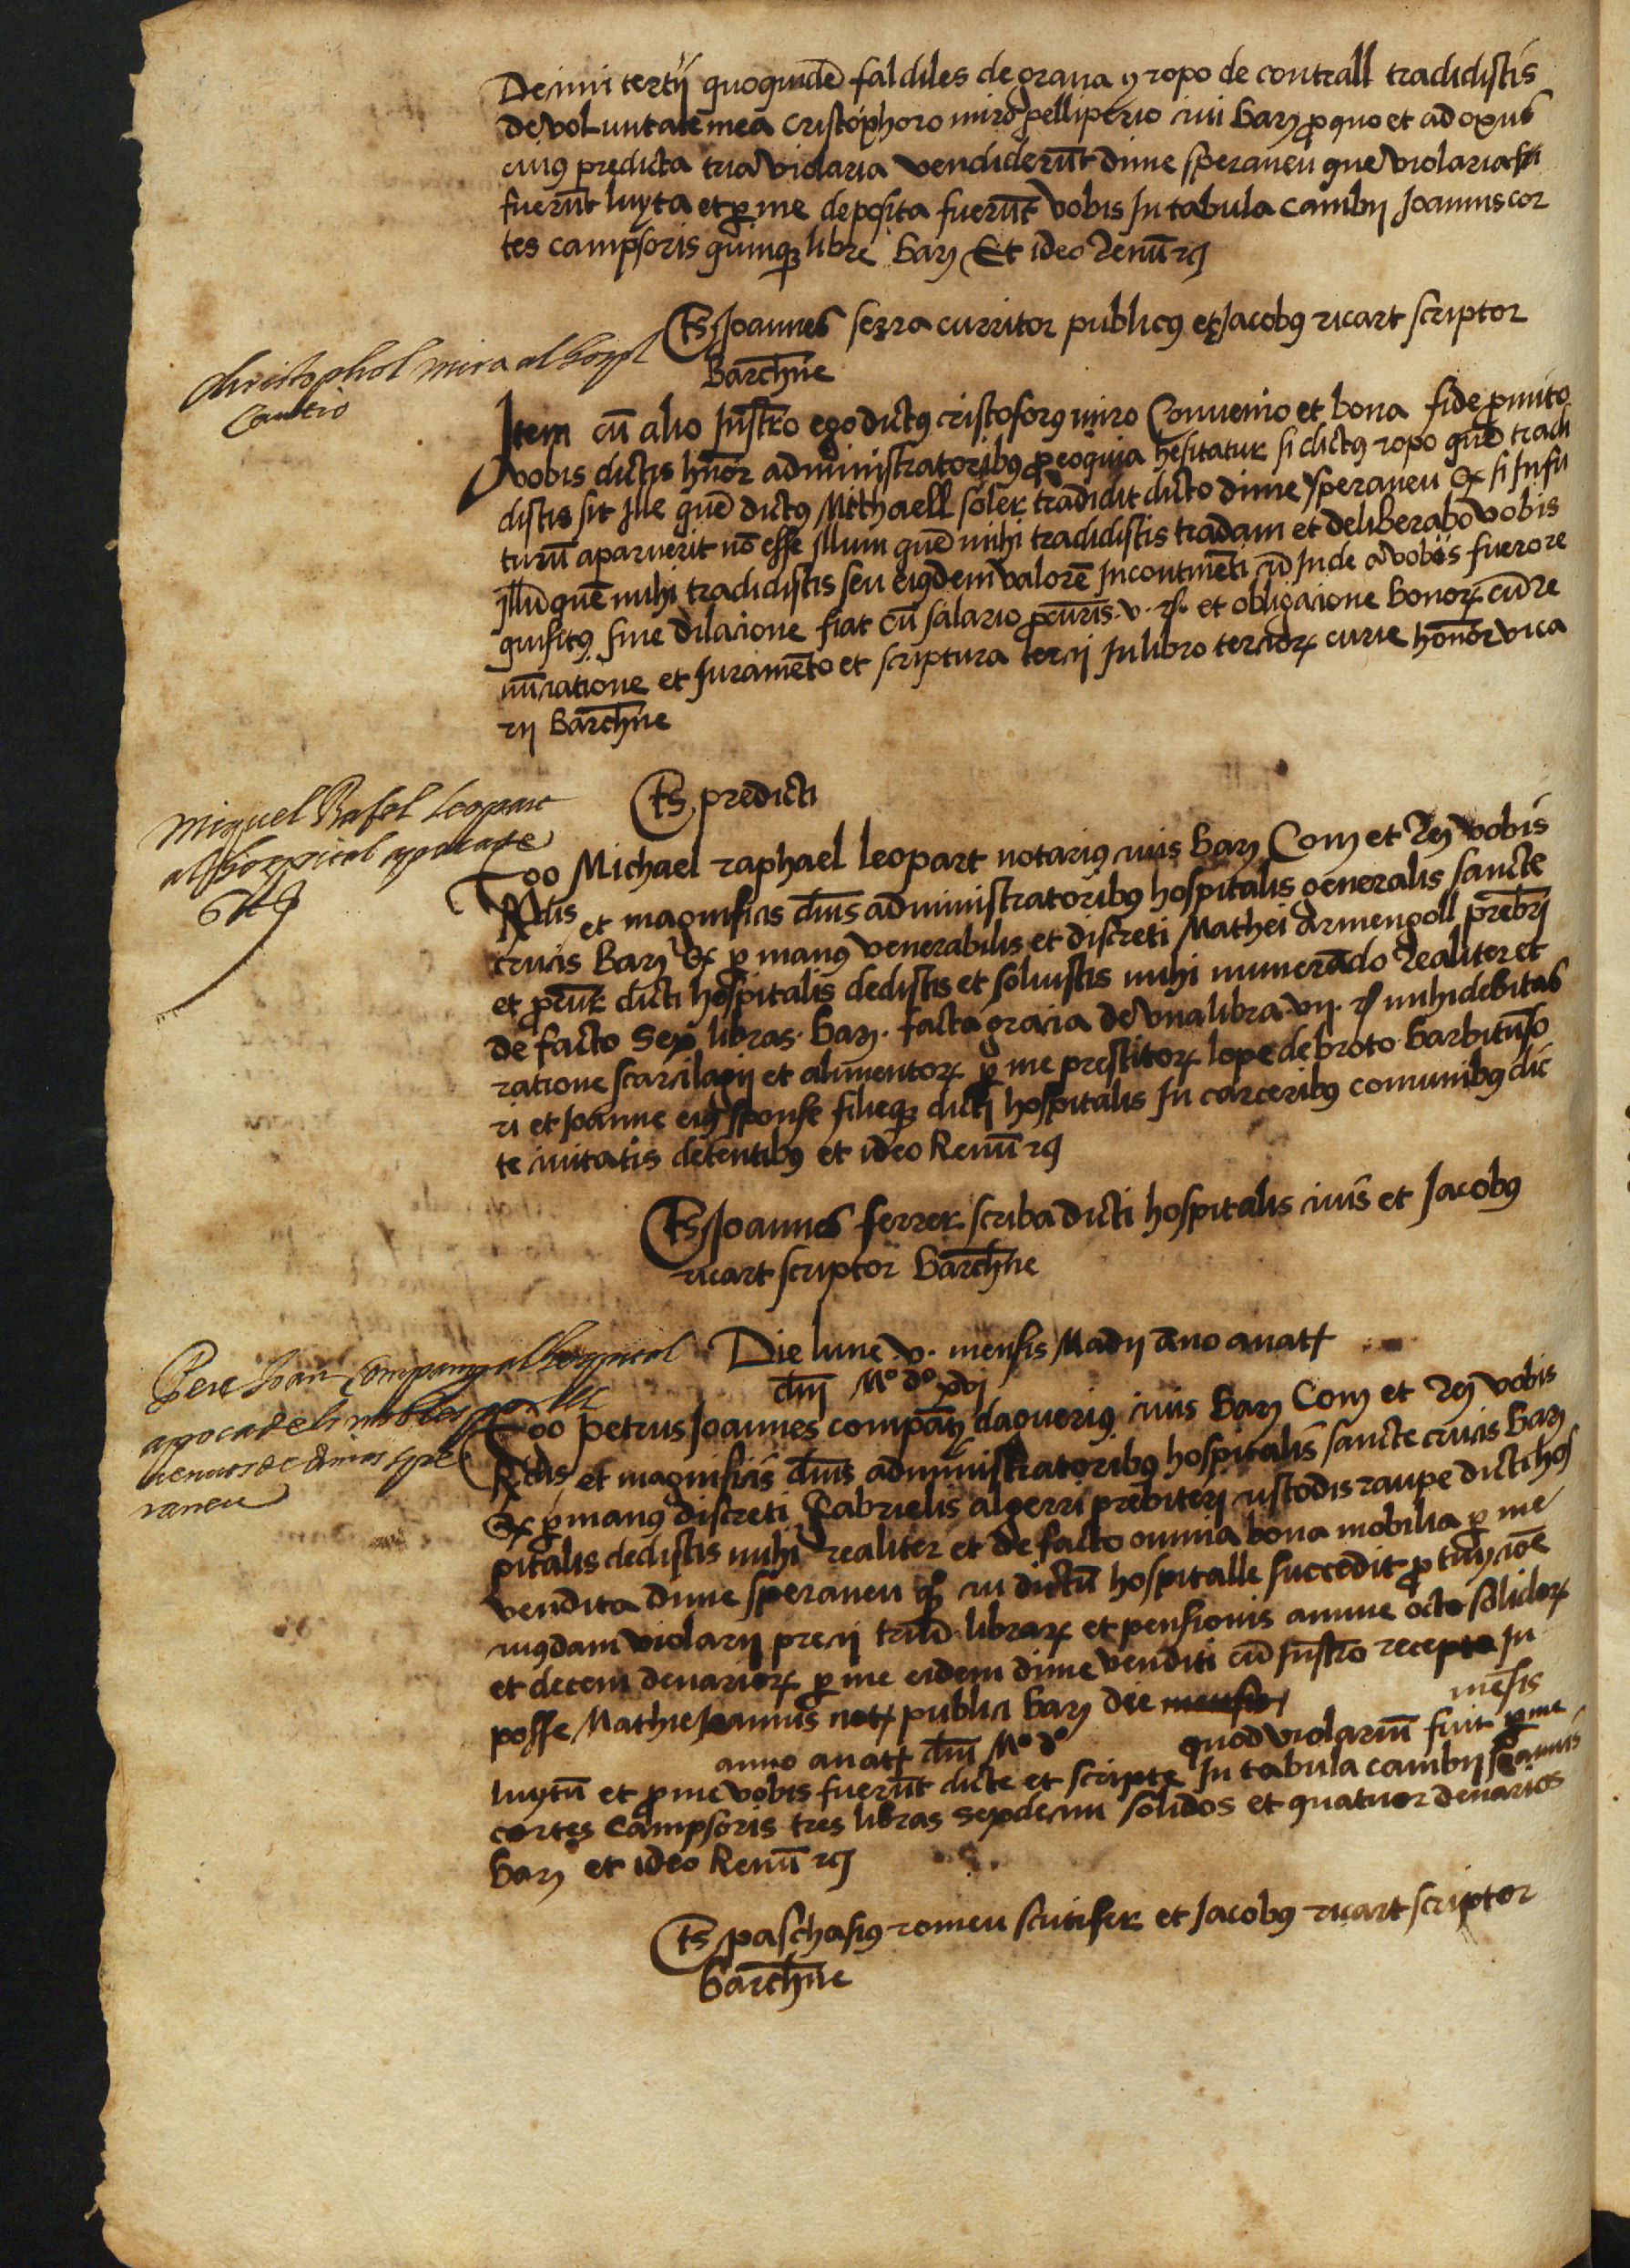 Decimi tertij quoquidē faldiles de grana y ropo de contrall tradidistis
de voluntate mea cristophoro miro pelliperio civi barn pro quo et ad opus
cuius predicta tria violaria vendiderūt dime speraneu que violaria
fuerūt luyta et p me deposita fuerūt vobis In tabula cambij Joannis cor
tes campsoris quinqz libre barn Et ideo Renū rcj
Ts Joannes serra curritor publicus et Jacobus ricart scriptor
Barchne
Christophol miro al hospl
Cautio
Item cū alio Instro ego dictus cristoforus miro Convenio et bona fide pmito
vobis dictis hnor administratoribus pro eo quia hesitatur si dictus ropo quē tradi
distis sit Ille quē dictus Michaell soler tradidit dicto dime speraneu Et si In fu
turū aparuerit nō esse Illum quē mihi tradidistis tradam et deliberabo vobis
Illū quē mihi tradidistis seu eiusdem valorē Incontinēti cū Inde a vobis fuero re
quisitus sine dilacione fiat cū salario pcuris v. sl. et obligacione bonor cū re
nūciatione et Iuramēto et scriptura tercij In libro tercior curie honor vica
rij Barchne
Ts predicti
Miquel Rafel Leopart
al hospital apocade
6 ll 9
Ego Michael raphael leopart notarius civis barn Com et Rn vobis
Rdis et magnificis dnis administratoribus hospitalis generalis sancte
crucis Barn Et p manus venerabilis et discreti Mathei Armengoll prebri
et pcur dicti hospitalis dedistis et solvistis mihi numerādo realiter et
de facto Sex libras barn. facta gracia de vna libra vij. sl mihi debitas
ratione scarcilagij et alimentor p me prestitor lope de broto barbitūso
ri et Joanne eius sponse filieqz dicti hospitalis In carceribus comunibus dic
te civitatis detentibus et ideo Renū rcj
Ts Joannes ferrer scriba dicti hospitalis civis et Jacobus
ricart scriptor barchne
Die lune v. mensis Madij āno a natt
dnj Mº dº xvj
Pere Joan Company al hospital
apoca dels mobles
de dimas spe
raneu
Ego petrus Joannes compāy daguerius civis barn Com et Rn vobis
Rdis et magnificis dnis administratoribus hospitalis sancte crucis barn
Et p manus discreti Gabrielis algerri prebiteri custodis raupe dicti hos
pitalis dedistis mihi realiter et de facto omnia bona mobilia p me
vendita dime speraneu cui dictū hospitalle succedit
cuiusdam violarij precij triū librar et pensionis annue octo solidor
et decem denarior p me eidem dime venditi cū Instro recepto In
posse Mathie Joannis not publici barn die mensis
anno a natt dni Mº dº quod violariū fuit p me
luytū et p me vobis fuerūt dicte et scripte In tabula cambij Joannis
cortes Campsoris tres libras sexdecim solidos et quatuor denarios
barn et ideo Renū rcj
Ts paschasius romeu scutifer et Jacobus ricart scriptor
barchne